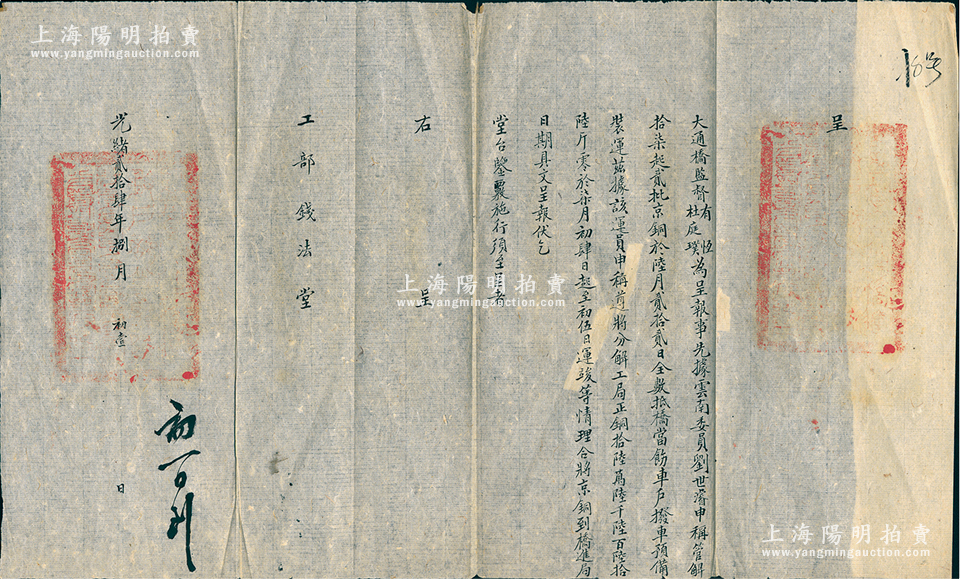 呈
大通橋監督有恆杜庭璞為呈報事先據雲南委員劉世濬申稱管解
拾柒起貳批京銅於陸月貳拾貳日全數抵橋當飭車戶撥車預備
裝運茲據該運員申稱遵將分解工局正銅拾陸萬陸千陸百陸拾
陸斤零於柒月初肆日起至初伍日運竣等情理合將京銅到橋進局
日期具文呈報伏乞
堂台鑒覈施行須至呈者
右呈
工部錢法堂
光緒貳拾肆年捌月初壹日
上海陽明拍賣
www.yangmingauction.com
上海陽明拍賣
www.yangmingauction.com
上海陽明拍賣
www.yangmingauction.com
上海陽明拍賣
www.yangmingauction.com